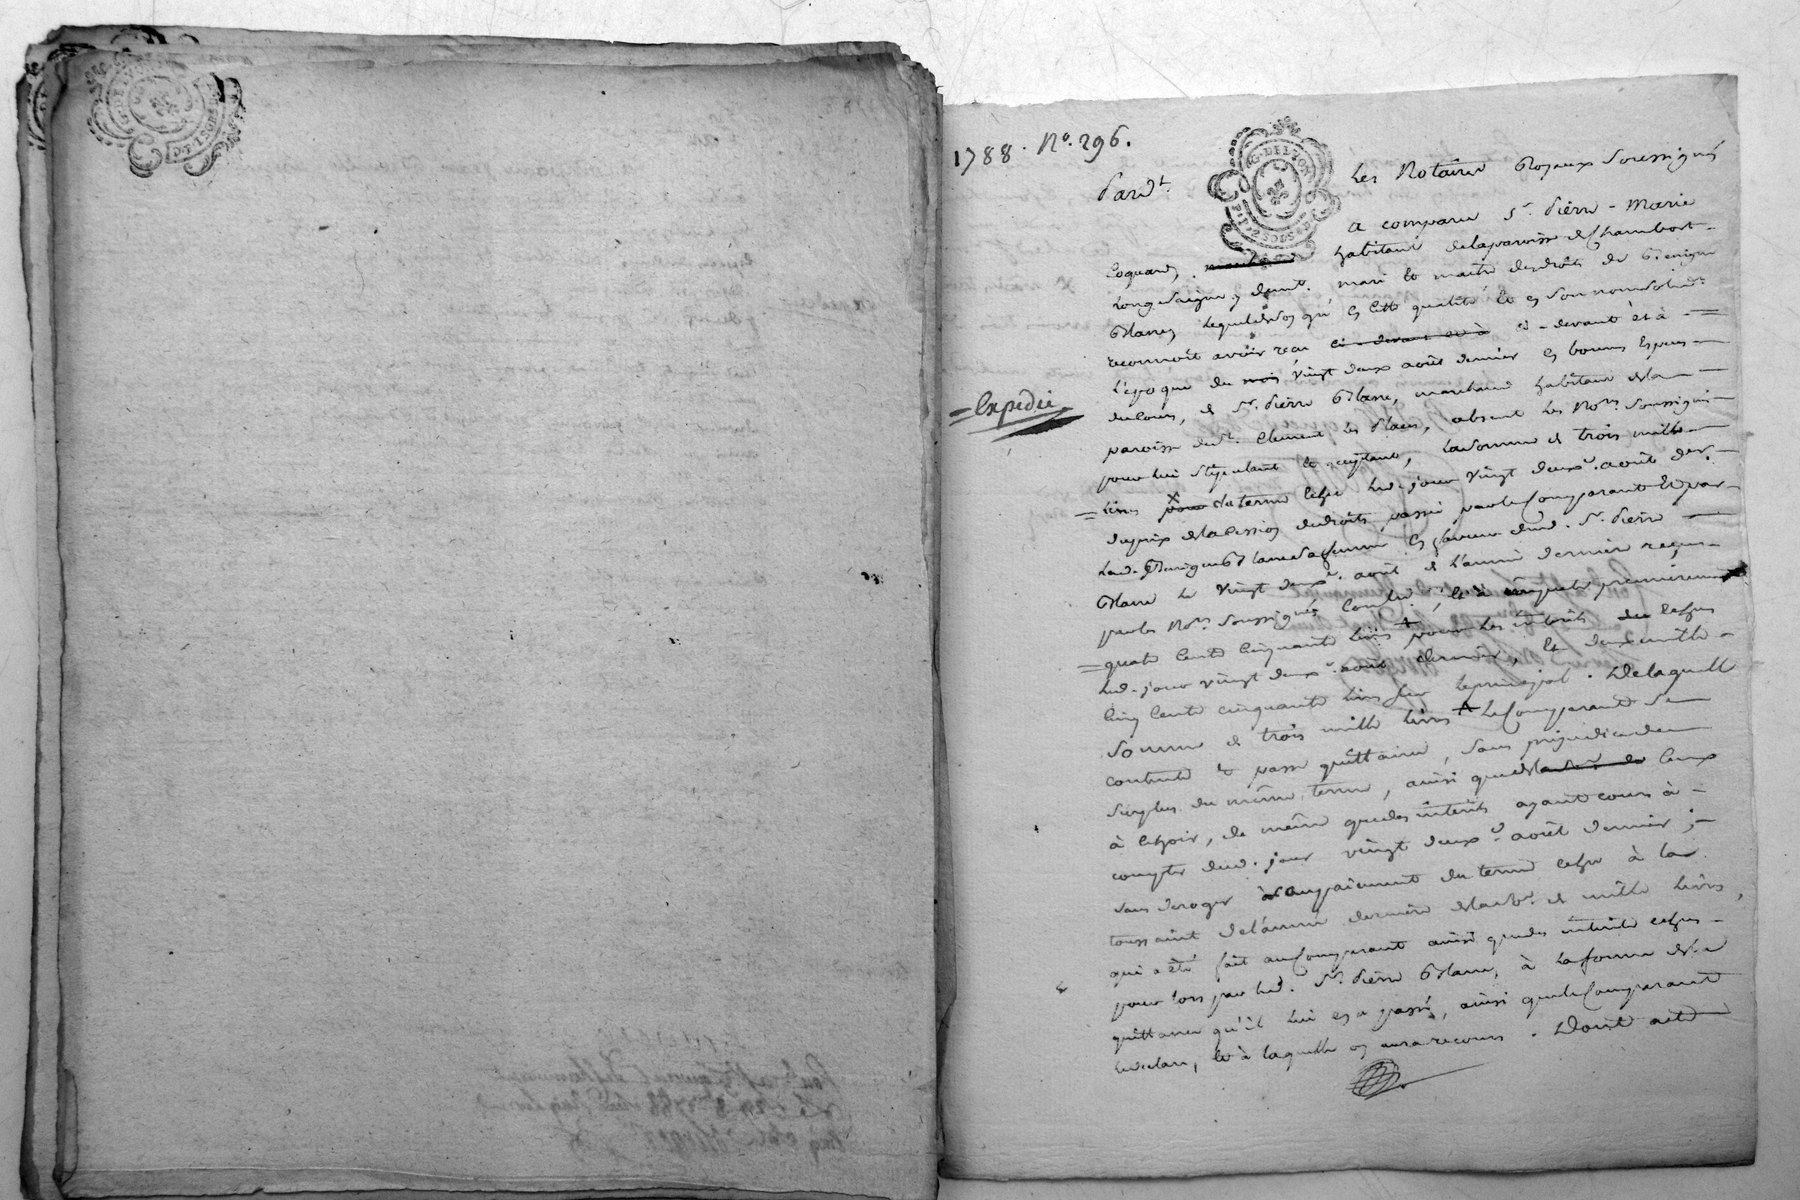 1788. No. 296.
G. DE LYON
Pardt. Les Notaires Royaux Soussignés
a comparu Sr. Pierre-Marie
Coquard, habitant de la paroisse de Chambost-
Longesaigne, y demt. mari et maître des droits de
Blanc, lequel de son gré en cette qualité et en son nom solid.
reconnoit avoir reçu ci-devant et à ci-devant et à
l'époque du mois vingt deux août dernier en bonnes Espèces
du cours, de Sr. pierre Blanc, marchand habitant de la
= Expédié
paroisse de St. Clement les places, absent les No.res soussignés
pour lui stipulant et acceptant, la somme de trois mille
livres pour du terme echu led. jour vingt deux août der.
du prix de la cession de droits passée par le Comparant et par
lad. Blanc sa femme en faveur dud. Sr. Pierre
Blanc le vingt deux août de l'année dernière reçue
par les No.res soussignés et à imputer premièrement
quatre cents cinquante livres pour les intérêts echus
led. jour vingt deux août dernier, et deux mille
cinq cents cinquante livres sur le principal. De laquelle
somme de trois mille livres le Comparant se
contente et passe quittance, sans préjudice du
surplus du même terme, ainsi que de ceux
à echoir, de même que des intérêts ayant cours à
compter dud. jour vingt deux août dernier;
sans deroger au paiement du terme echu à la
toussaint de l'année dernière de la so. de mille livres,
qui a été fait au Comparant ainsi que des intérêts echus
pour lors par led. Sr. Pierre Blanc, à la forme de la
quittance qu'il lui en a passé, ainsi que le Comparant
le declare, et à laquelle on aura recours. Dont acte